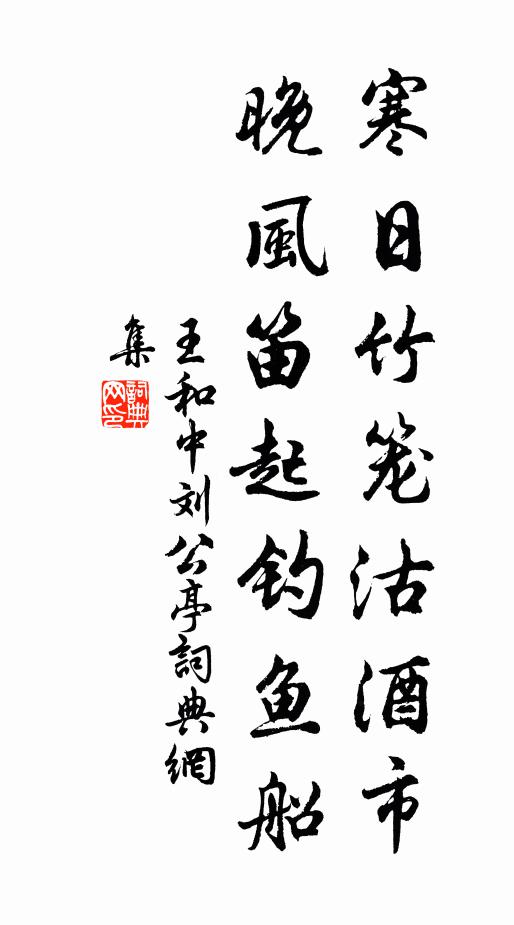 寒日竹笼沽酒市
晚風笛起钓鱼船
王和中刘公亭詞典網
集
詞典
网印